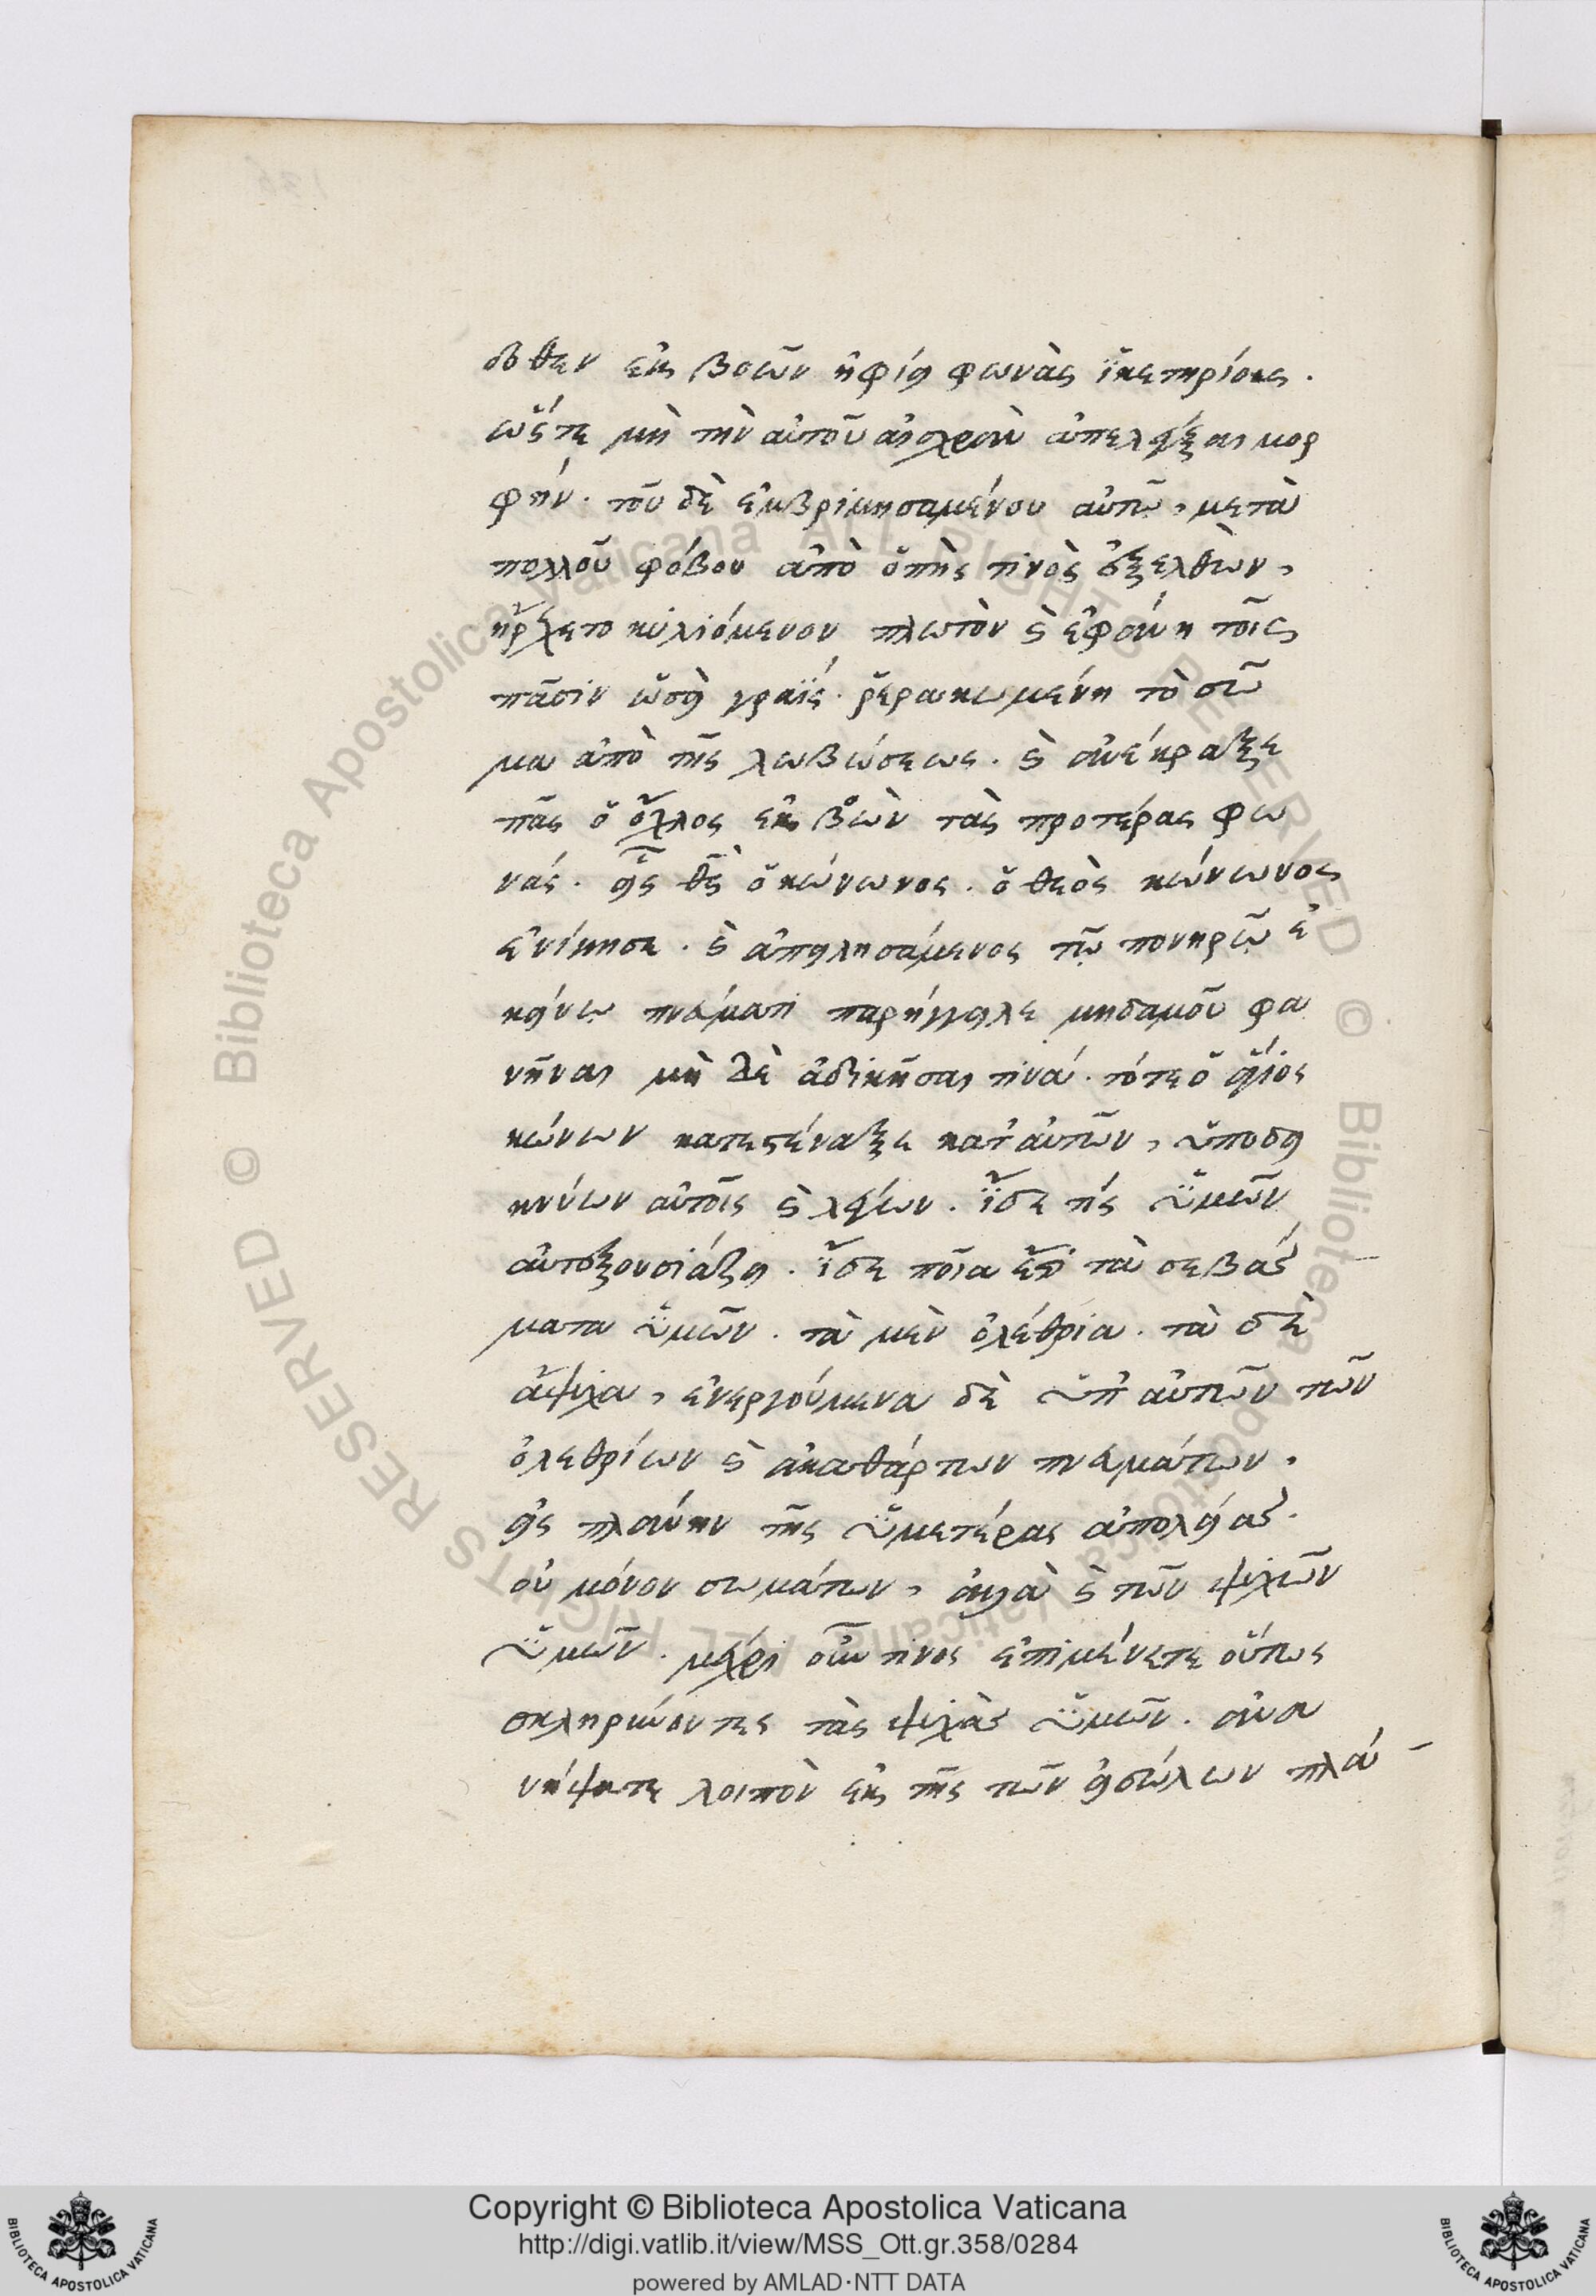 δοθεν ἐκβοῶν ἠφίει φωνὰς ἱκετηρίους.
ὥστε μὴ τὴν αὐτοῦ αἰσχρὰν ἀπελέγξαι μορ
φήν. τοῦ δὲ ἐμβριμησαμένου αὐτῷ, μετὰ
πολλοῦ φόβου ἀπὸ ὀπῆς τινὸς ἐξελθὼν,
ἤρχετο κυλιόμενον πλωτὸν καὶ ἐφάνη τοῖς
πᾶσιν ὡσεὶ
μα ἀπὸ τῆς λωβώσεως. καὶ ἀνέκραξε
πᾶς ὁ ὄχλος ἐκβοῶν τὰς προτέρας φω
νάς. εἷς θεὸς ὁ κώνωνος. ὁ θεὸς κώνωνος
ἐνίκησε. καὶ ἀπειλησάμενος τῷ πονηρῷ ἐ
κείνῳ πνεύματι παρήγγειλε μηδαμοῦ φα
νῆναι μὴ δὲ ἀδικῆσαι τινά. τότε ὁ ἅγιος
κώνων κατεστέναξε κατ' αὐτῶν, ὑποδει
κνύων αὐτοῖς καὶ λέγων. ἴδε τίς ὑμῶν
αὐτεξουσιάζει. ἴδε ποῖα ἐστὶ τὰ σεβάσ
ματα ὑμῶν. τὰ μὲν ὀλέθρια. τὰ δὲ
ἄψυχα, ἐνεργούμενα δὲ ὑπ' αὐτῶν τῶν
ὀλεθρίων καὶ ἀκαθάρτων πνευμάτων.
εἰς πλάνην τῆς ὑμετέρας ἀπωλείας.
οὐ μόνον σωμάτων, ἀλλὰ καὶ τῶν ψυχῶν
ὑμῶν. μέχρι οὖν τίνος ἐπιμένετε οὕτως
σκληρύνοντες τὰς ψυχὰς ὑμῶν. ἀνα
νήψατε λοιπὸν ἐκ τῆς τῶν εἰδώλων πλά
© Biblioteca Apostolica Vaticana ALL RIGHTS RESERVED
Copyright © Biblioteca Apostolica Vaticana
http://digi.vatlib.it/view/MSS_Ott.gr.358/0284
powered by AMLAD·NTT DATA
BIBLIOTECA APOSTOLICA VATICANA
BIBLIOTECA APOSTOLICA VATICANA